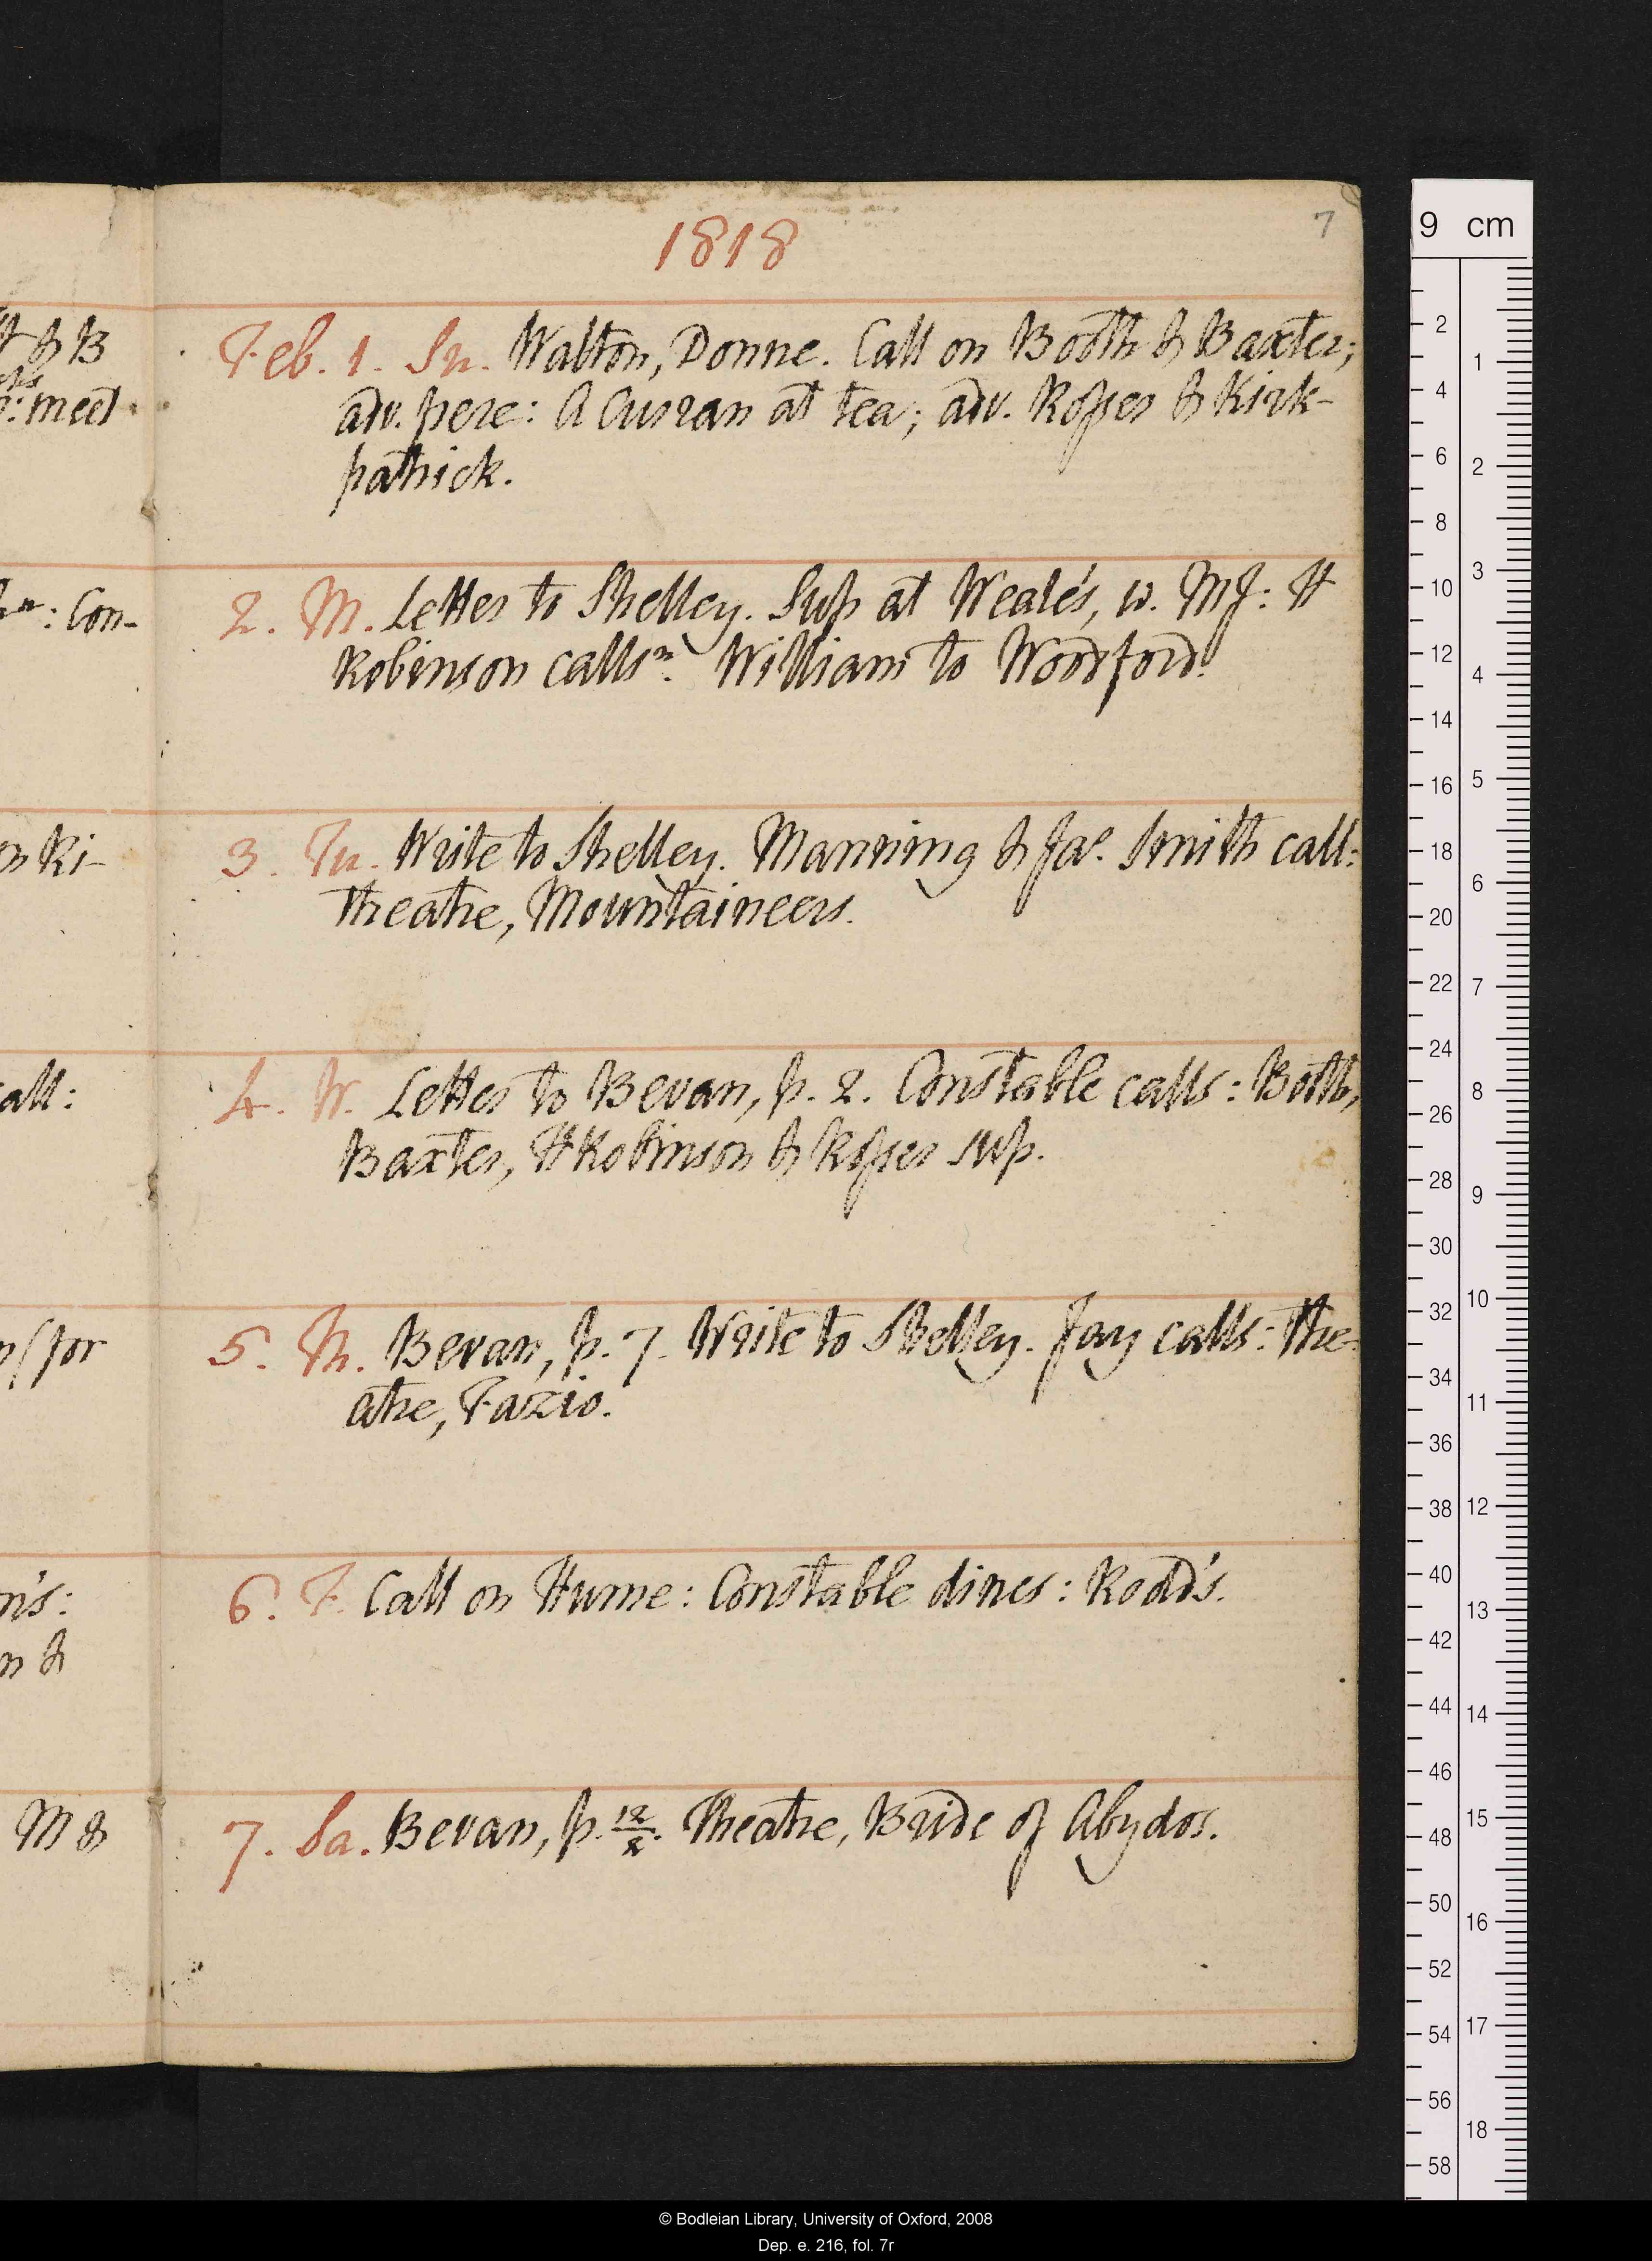 1818
7
& B
: meet
Feb. 1. Su. Walton, Donne. Call on Booth & Baxter;
adv. pere: A Curran at tea; adv. Rosser & Kirk-
patrick.
: Con-
2. M. Letter to Shelley. Sup at Weale's, w. MJ: H
Robinson calls n. William to Woodford.
Ki-
3. Tu. Write to Shelley. Manning & Jas. Smith call:
theatre, Mountaineers.
all:
4. W. Letter to Bevan, p. 2. Constable calls: Booth,
Baxter, H Robinson & Rosser sup.
for
5. Th. Bevan, p. 7. Write to Shelley. Jay calls: The-
atre, Fazio.
n's:
n &
6. F. Call on Hume: Constable dines: Rodd's.
M &
7. Sa. Bevan, p. 12/2. Theatre, Bride of Abydos.
9 cm
2
4
6
8
10
12
14
16
18
20
22
24
26
28
30
32
34
36
38
40
42
44
46
48
50
52
54
56
58
1
2
3
4
5
6
7
8
9
10
11
12
13
14
15
16
17
18
© Bodleian Library, University of Oxford, 2008
Dep. e. 216, fol. 7r